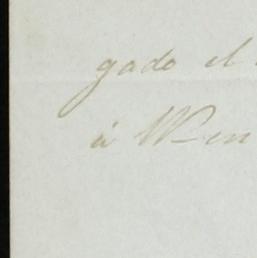 gado el
á Wen